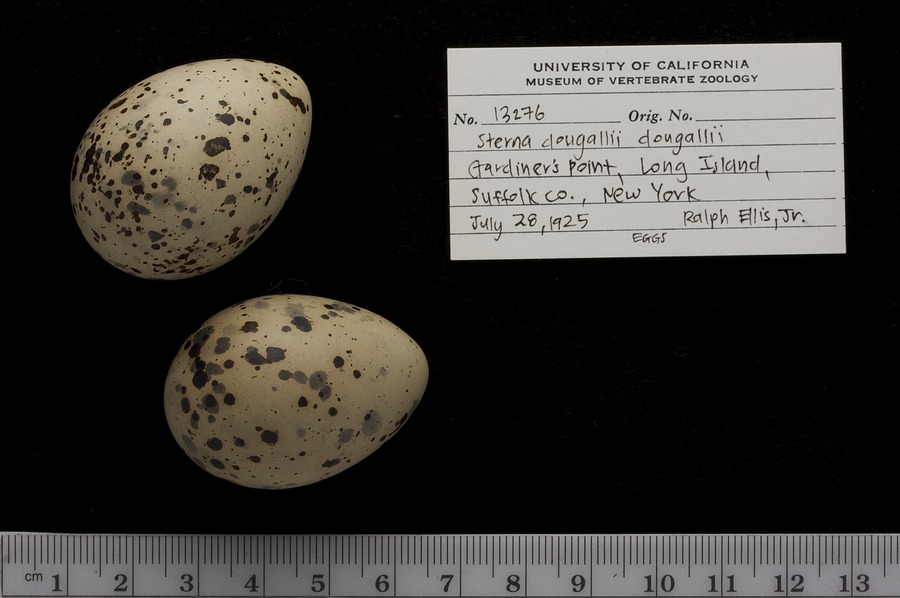 UNIVERSITY OF CALIFORNIA
MUSEUM OF VERTEBRATE ZOOLOGY
No. 13276 Orig. No.
Sterna dougallii dougallii
Gardiner's Point, Long Island,
Suffolk co., New York
July 28, 1925 Ralph Ellis, Jr.
EGGS
cm 1 2 3 4 5 6 7 8 9 10 11 12 13